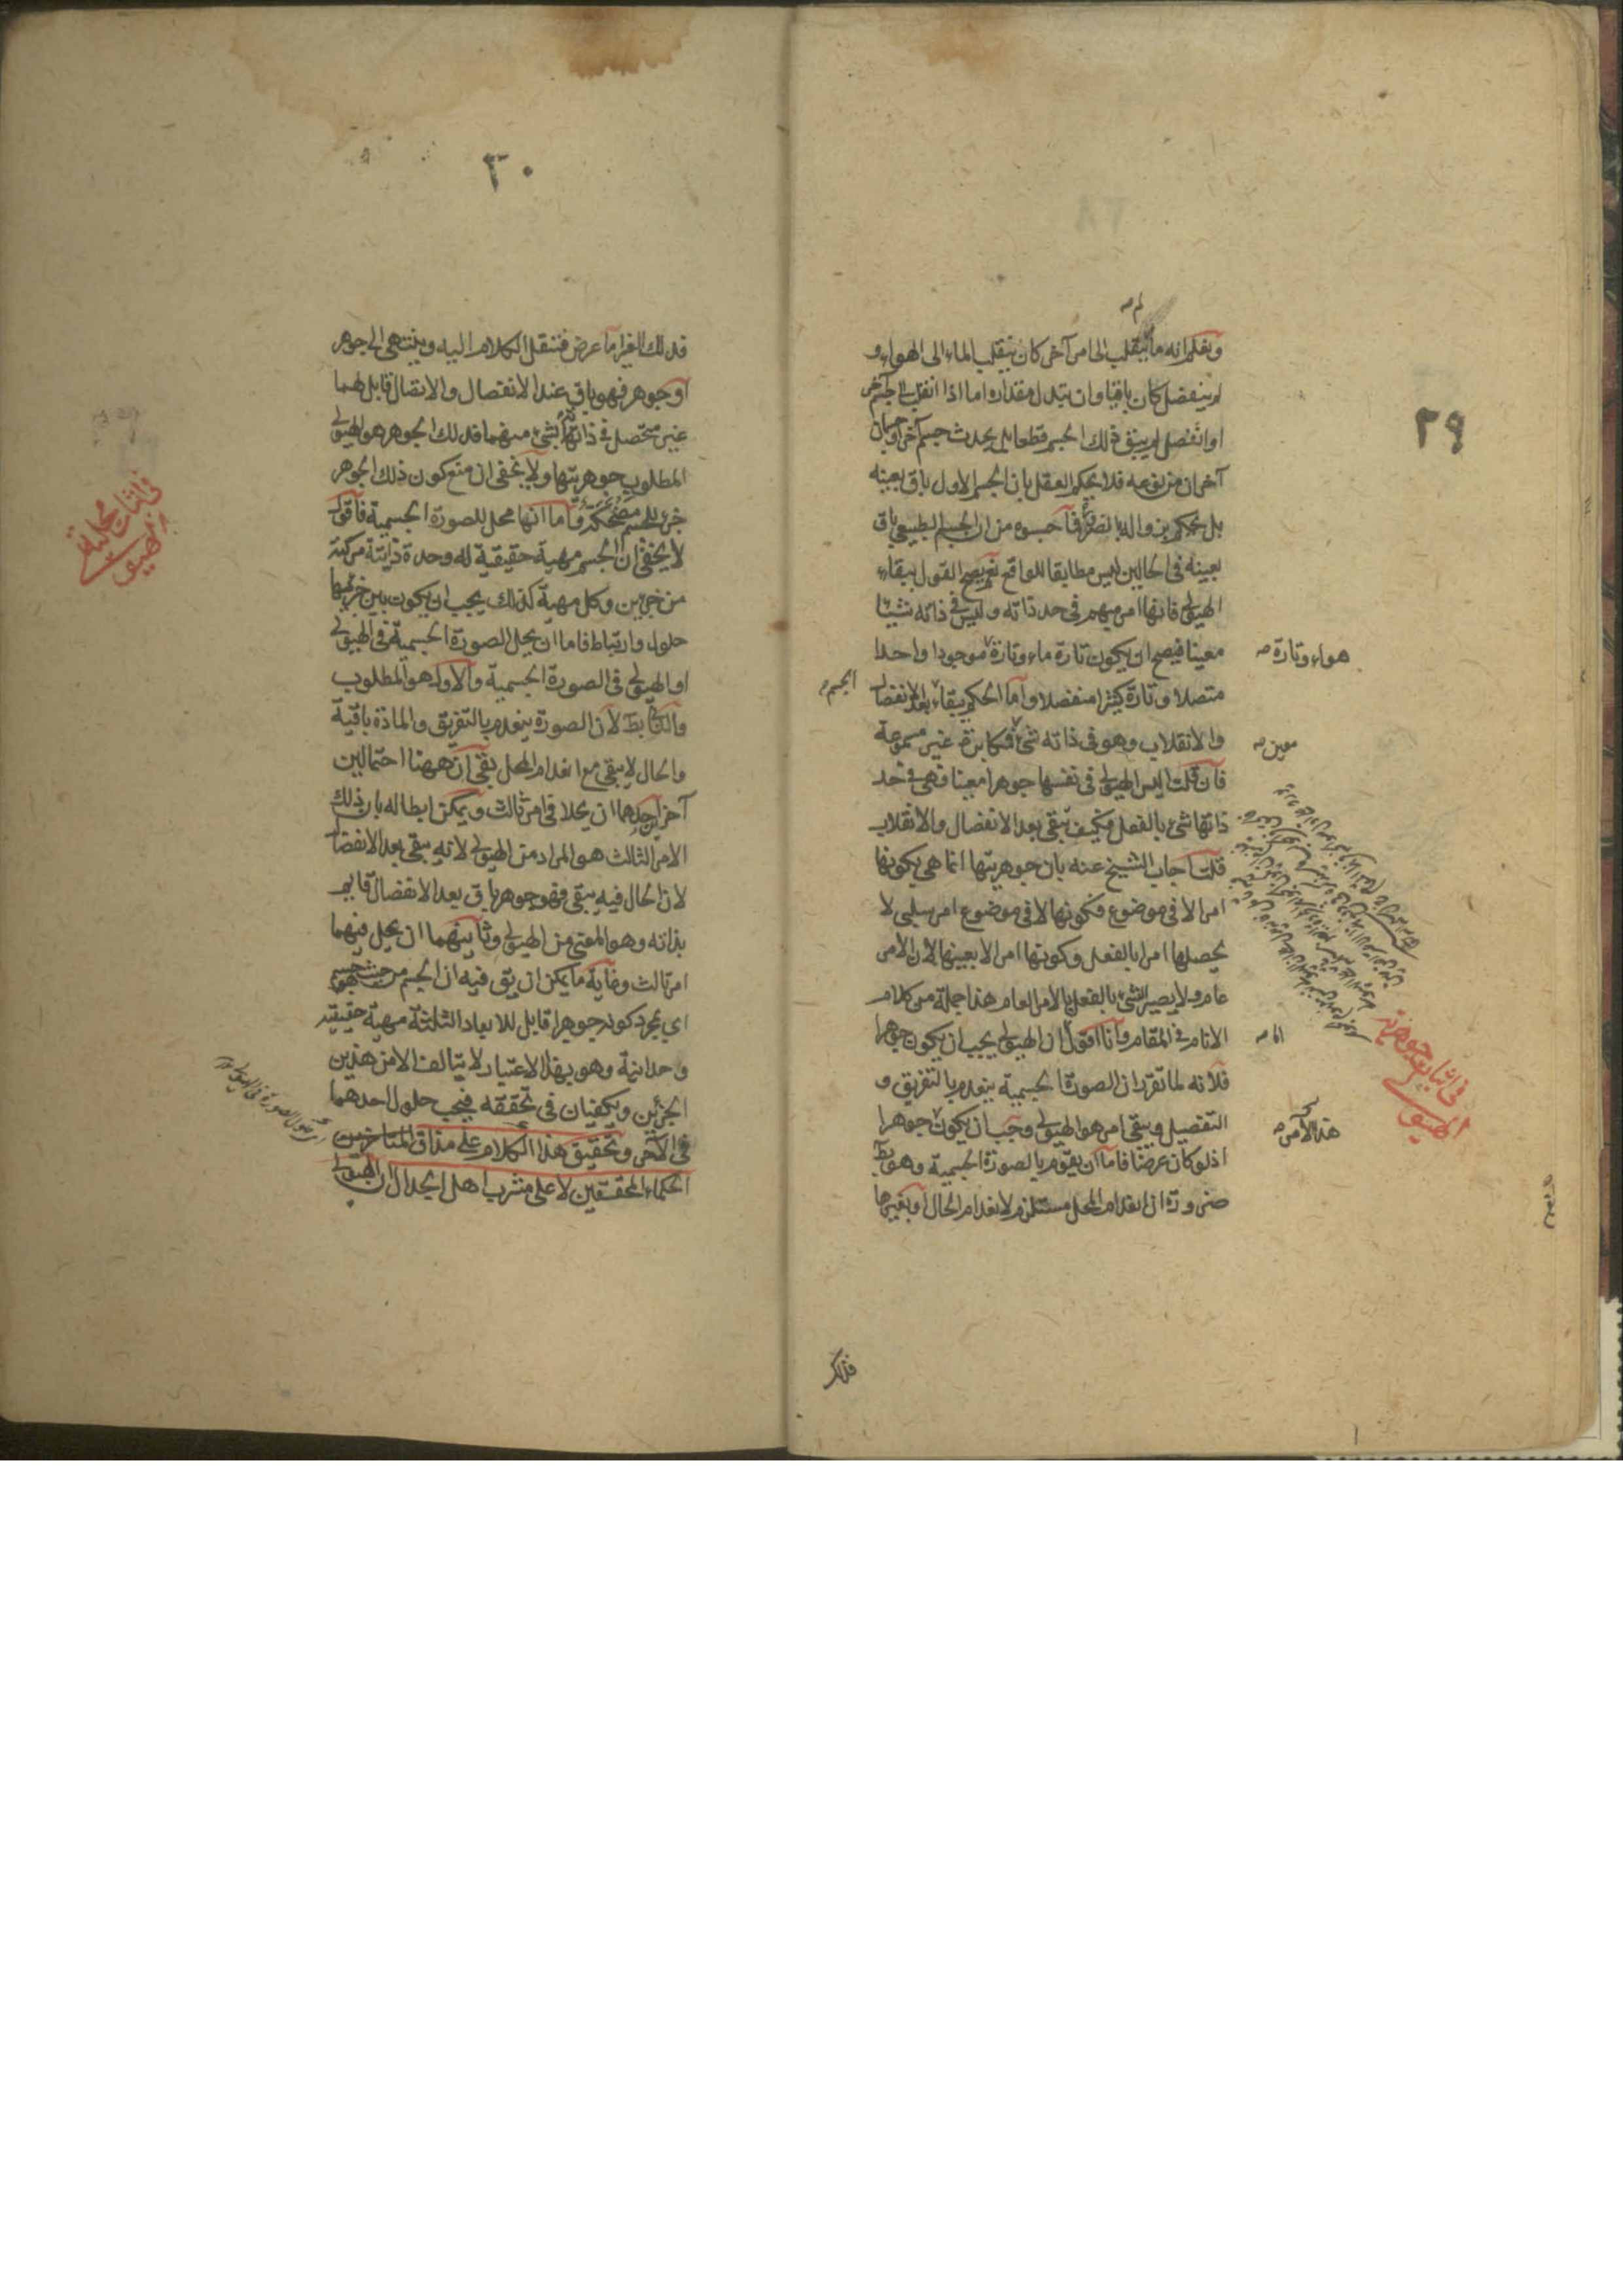 ٢٩
لم صح
ونعلم انه ما ينقلب الى امر آخر كان ينقلب الماء الى الهواء و
لم ينفصل كان باقيا وان تبدل مقداره اما اذا انقلب الى جسم آخر
او انفصل لم يبق ذلك الجسم قطعا بل يحدث جسم آخر او جسمان
آخران من نوعه فلا يحكم العقل بان الجسم الاول باق بعينه
بل يحكم بزواله بالضرورة فما حسبوه من ان الجسم الطبيعي باق
بعينه في الحالين ليس مطابقا للواقع نعم يصح القول ببقاء
الهيولى فانها امر مبهم في حد ذاته وليس في ذاته شيئا
معينا فيصح ان يكون تارة ماء وتارة موجودا واحدا
هواء وتارة صح
متصلا وتارة كثيرا منفصلا واما الحكم ببقاء بعد الانفصال
الجسم
والانقلاب وهو في ذاته شئ فمكابرة غير مسموعة
معين صح
فان قلت اليس الهيولى في نفسها جوهرا معينا فهي في حد
ذاتها شئ بالفعل فكيف تبقى بعد الانفصال والانقلاب
قلت اجاب الشيخ عنه بان جوهريتها انما هي بكونها
امرا لا في موضوع فكونها لا في موضوع امر سلبي لا
يحصلها امرا بالفعل وكونها امرا لا يعينها لان الامر
عام ولا يصير الشئ بالفعل بالامر العام هذا جملة من كلام
الانام في المقام وانا اقول ان الهيولى يجب ان يكون جوهرا
في اثبات جوهرية
الهيولى
فلانه لما تقرر ان الصورة الجسمية ينعدم بالتفريق و
التفصيل ويبقى امر هو الهيولى وجب ان يكون جوهرا
هذا الامر صح
اذ لو كان عرضا فاما ان يقوم بالصورة الجسمية وهو بط
ضرورة ان انعدام المحل مستلزم لانعدام الحال او بغيرها
فذلك
٣٠
فذلك الغير اما عرض فننقل الكلام اليه وينتهي الى جوهر
او جوهر فهو باق عند الانفصال والاتصال قابل لهما
غير متحصل في ذاتها بشئ منهما فذلك الجوهر هو الهيولى
المطلوب جوهريتها ولا يخفى ان منع كون ذلك الجوهر
جزء للجسم واما انها محل للصورة الجسمية فاقول
في اثبات محلية
الهيولى
لا يخفى ان الجسم مهية حقيقية له وحدة ذاتية مركبة
من جزئين وكل مهية كذلك يجب ان يكون بين جزئيها
حلول وارتباط فاما ان يحل الصورة الجسمية في الهيولى
او الهيولى في الصورة الجسمية والاول هو المطلوب
والثاني بط لان الصورة ينعدم بالتفريق والمادة باقية
والحال لا يبقى مع انعدام المحل بقي ان ههنا احتمالين
آخر احدهما ان يحلا في امر ثالث ويمكن ابطاله بان ذلك
الامر الثالث هو المراد من الهيولى لانه يبقى بعد الانفصال
لان الحال فيه يبقى فهو جوهر باق بعد الانفصال قايم
بذاته وهو المعنى من الهيولى وثانيهما ان يحل فيهما
امر ثالث وغاية ما يمكن ان يق فيه ان الجسم من حيث هو جسم
اي بمجرد كونه جوهرا قابل للابعاد الثلثة مهية حقيقية
وحدانية وهو بهذا الاعتبار لا يتالف الا من هذين
الجزئين ويكفيان في تحققه فيجب حلول احدهما
في الآخر وتحقيق هذا الكلام على مذاق المتاخرين
الحكماء المحققين لا على مشرب اهل الجدال ان الهيولى